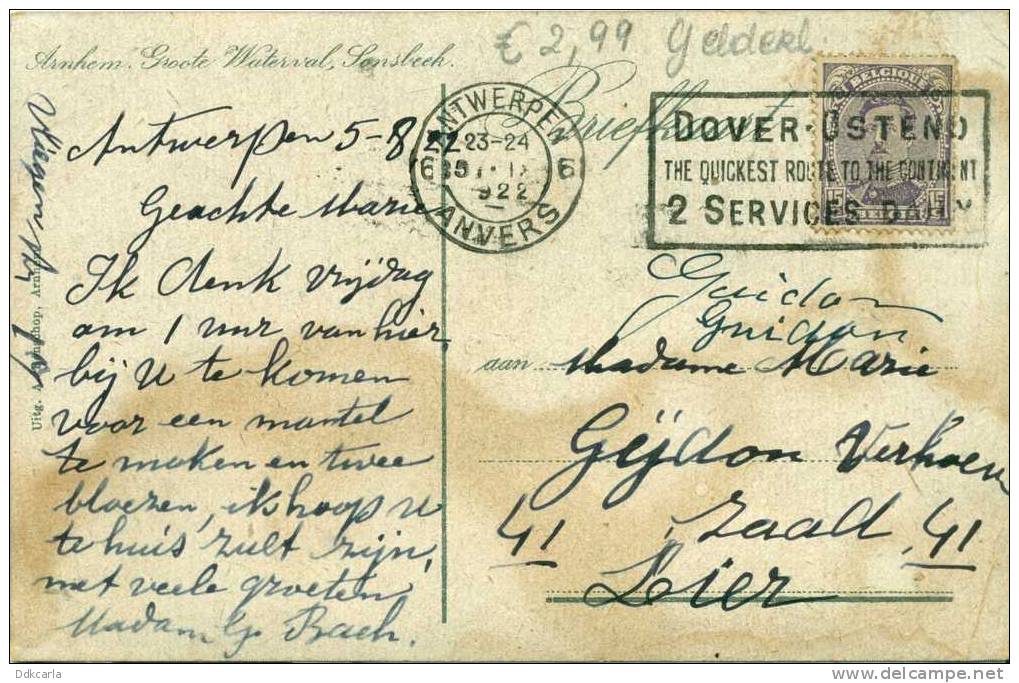 € 2,99 Gelderl.
Arnhem. Groote Waterval, Sonsbeek.
Briefkaart
ANTWERPEN
6 23-24 6
1922
ANVERS
BELGIQUE
15
DOVER-OSTEND
THE QUICKEST ROUTE TO THE CONTINENT
2 SERVICES DAILY
Antwerpen 5-8/22
Geachte Marie
Ik denk vrijdag
om 1 uur van hier
bij U te komen
voor een mantel
te maken en twee
bloezen, ik hoop U
te huis zult zijn,
met veele groeten
Madam Bach.
Uitg. Arnhem
Guidon
Guidon
aan Madame Marie
Geijdon Verhoeven
41 Zaad 41
Lier
Ddkcarla
delcampe.net